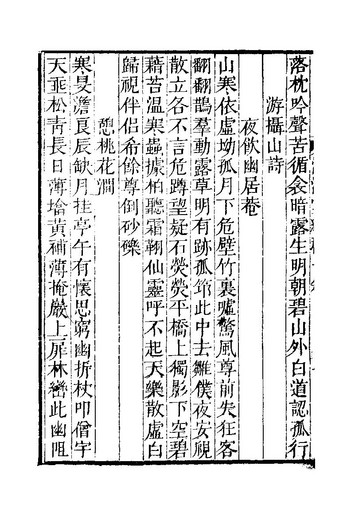 落枕吟聲苦循僉暗露生明朝碧山外白道認孤行
游攝山詩
夜飲幽居菴
山寒依虛坳孤月下危壁竹裏噓驚風尊前失狂客
翻翻鵲羣動露草明有跡孤筇此中去雛僕夜安視
散立各不言危蹲望疑石熒熒平橋上獨影下空碧
藉苦溫寒蟲據柏聽霜翎仙靈呼不起天樂散虛白
歸視伴侶希餘尊倒砂礫
憩桃花澗
寒旻澹良辰缺月挂亭午有懷思窮幽折杖叩僧宇
天垂松靑長日薄墖黃補薄掩嚴上屏林巒此幽阻